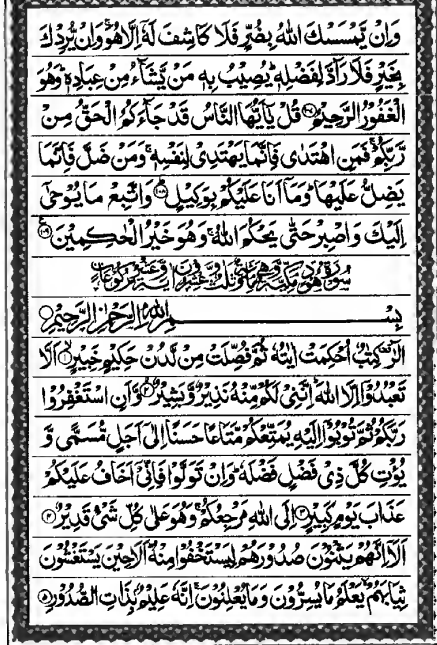 وَاِنْ يَّمْسَسْكَ اللّٰهُ بِضُرٍّ فَلَا كَاشِفَ لَهٗٓ اِلَّا هُوَ ۚ وَاِنْ يُّرِدْكَ
بِخَيْرٍ فَلَا رَآدَّ لِفَضْلِهٖ ؕ يُصِيْبُ بِهٖ مَنْ يَّشَآءُ مِنْ عِبَادِهٖ ؕ وَهُوَ
الْغَفُوْرُ الرَّحِيْمُ ۝۱۰۷ قُلْ يٰٓاَيُّهَا النَّاسُ قَدْ جَآءَكُمُ الْحَقُّ مِنْ
رَّبِّكُمْ ۚ فَمَنِ اهْتَدٰى فَاِنَّمَا يَهْتَدِيْ لِنَفْسِهٖ ۚ وَمَنْ ضَلَّ فَاِنَّمَا
يَضِلُّ عَلَيْهَا ۚ وَمَآ اَنَا عَلَيْكُمْ بِوَكِيْلٍ ۝۱۰۸ وَاتَّبِعْ مَا يُوْحٰٓى
اِلَيْكَ وَاصْبِرْ حَتّٰى يَحْكُمَ اللّٰهُ ۚ وَهُوَ خَيْرُ الْحٰكِمِيْنَ ۝۱۰۹
سُوْرَةُ هُوْدٍ مَكِّيَّةٌ وَّهِيَ مِائَةٌ وَّثَلٰثٌ وَّعِشْرُوْنَ اٰيَةً وَّعَشْرُ رُكُوْعَاتٍ
بِسْمِ اللّٰهِ الرَّحْمٰنِ الرَّحِيْمِ
الٓرٰ ۫ كِتٰبٌ اُحْكِمَتْ اٰيٰتُهٗ ثُمَّ فُصِّلَتْ مِنْ لَّدُنْ حَكِيْمٍ خَبِيْرٍ ۝۱ اَلَّا
تَعْبُدُوْٓا اِلَّا اللّٰهَ ؕ اِنَّنِيْ لَكُمْ مِّنْهُ نَذِيْرٌ وَّبَشِيْرٌ ۝۲ وَّاَنِ اسْتَغْفِرُوْا
رَبَّكُمْ ثُمَّ تُوْبُوْٓا اِلَيْهِ يُمَتِّعْكُمْ مَّتَاعًا حَسَنًا اِلٰٓى اَجَلٍ مُّسَمًّى وَّ
يُؤْتِ كُلَّ ذِيْ فَضْلٍ فَضْلَهٗ ؕ وَاِنْ تَوَلَّوْا فَاِنِّيْٓ اَخَافُ عَلَيْكُمْ
عَذَابَ يَوْمٍ كَبِيْرٍ ۝۳ اِلَى اللّٰهِ مَرْجِعُكُمْ ۚ وَهُوَ عَلٰى كُلِّ شَيْءٍ قَدِيْرٌ ۝۴
اَلَآ اِنَّهُمْ يَثْنُوْنَ صُدُوْرَهُمْ لِيَسْتَخْفُوْا مِنْهُ ؕ اَلَا حِيْنَ يَسْتَغْشُوْنَ
ثِيَابَهُمْ ۙ يَعْلَمُ مَا يُسِرُّوْنَ وَمَا يُعْلِنُوْنَ ۚ اِنَّهٗ عَلِيْمٌۢ بِذَاتِ الصُّدُوْرِ ۝۵